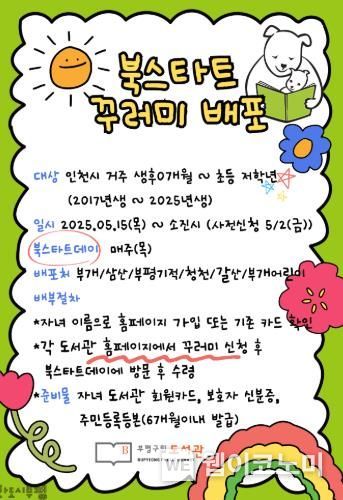 북스타트
꾸러미 배포
대상 인천시 거주 생후0개월 ~ 초등 저학년
(2017년생 ~ 2025년생)
일시 2025.05.15(목) ~ 소진시 (사전신청 5/2(금))
북스타트데이 매주(목)
배포처 부개/삼산/부평기적/청천/갈산/부개어린이
배부절차
*자녀 이름으로 홈페이지 가입 또는 기존 카드 확인
*각 도서관 홈페이지에서 꾸러미 신청 후
북스타트데이에 방문 후 수령
*준비물 자녀 도서관 회원카드, 보호자 신분증,
주민등록등본(6개월이내 발급)
B 부평구립 도서관
WE 웬이코노미